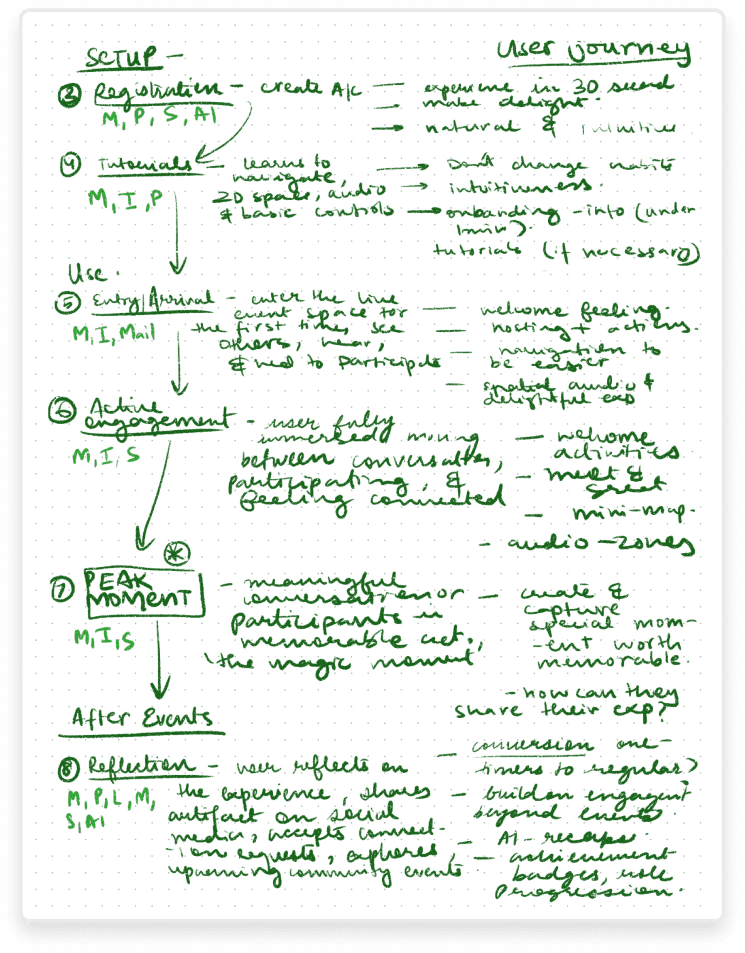 SETUP —
User journey
③ Registration — create A/c — experience in 30 second
→ make delight.
→ natural & intuitive
M, P, S, AI
④ Tutorials — learns to navigate, 2D space, audio & basic controls
→ Don't change habits
→ intuitiveness.
→ onbanding — into (under 1min).
tutorials (if necessary)
M, I, P
Use.
⑤ Entry/Arrival — enter the live
event space for
the first time, see
others, hear,
& need to participate
M, I, Mail
— welcome feeling.
— hosting + actions.
— navigation to
be easier
— spatial audio &
delightful exp
⑥ Active
engagement — user fully
immersed moving
between
participating, &
feeling connected
M, I, S
— welcome
activities
— meet &
greet
— mini-map.
— audio-zones
⑦ PEAK
MOMENT — meaningful
or
participants in
memorable act.,
the magic moment
M, I, S
— create &
capture
special mom-
-ent worth
memorable.
— how can they
share their exp?
After Events
⑧ Reflection — user reflects on
the experience, shares
artifact on social
media, accepts connect-
-ion requests, explores,
upcoming community events
M, P, L, M,
S, AI
— conversion one-
timers to regular?
— build on engagent
beyond events
— AI-recaps.
— achievement
badges, role
progression.